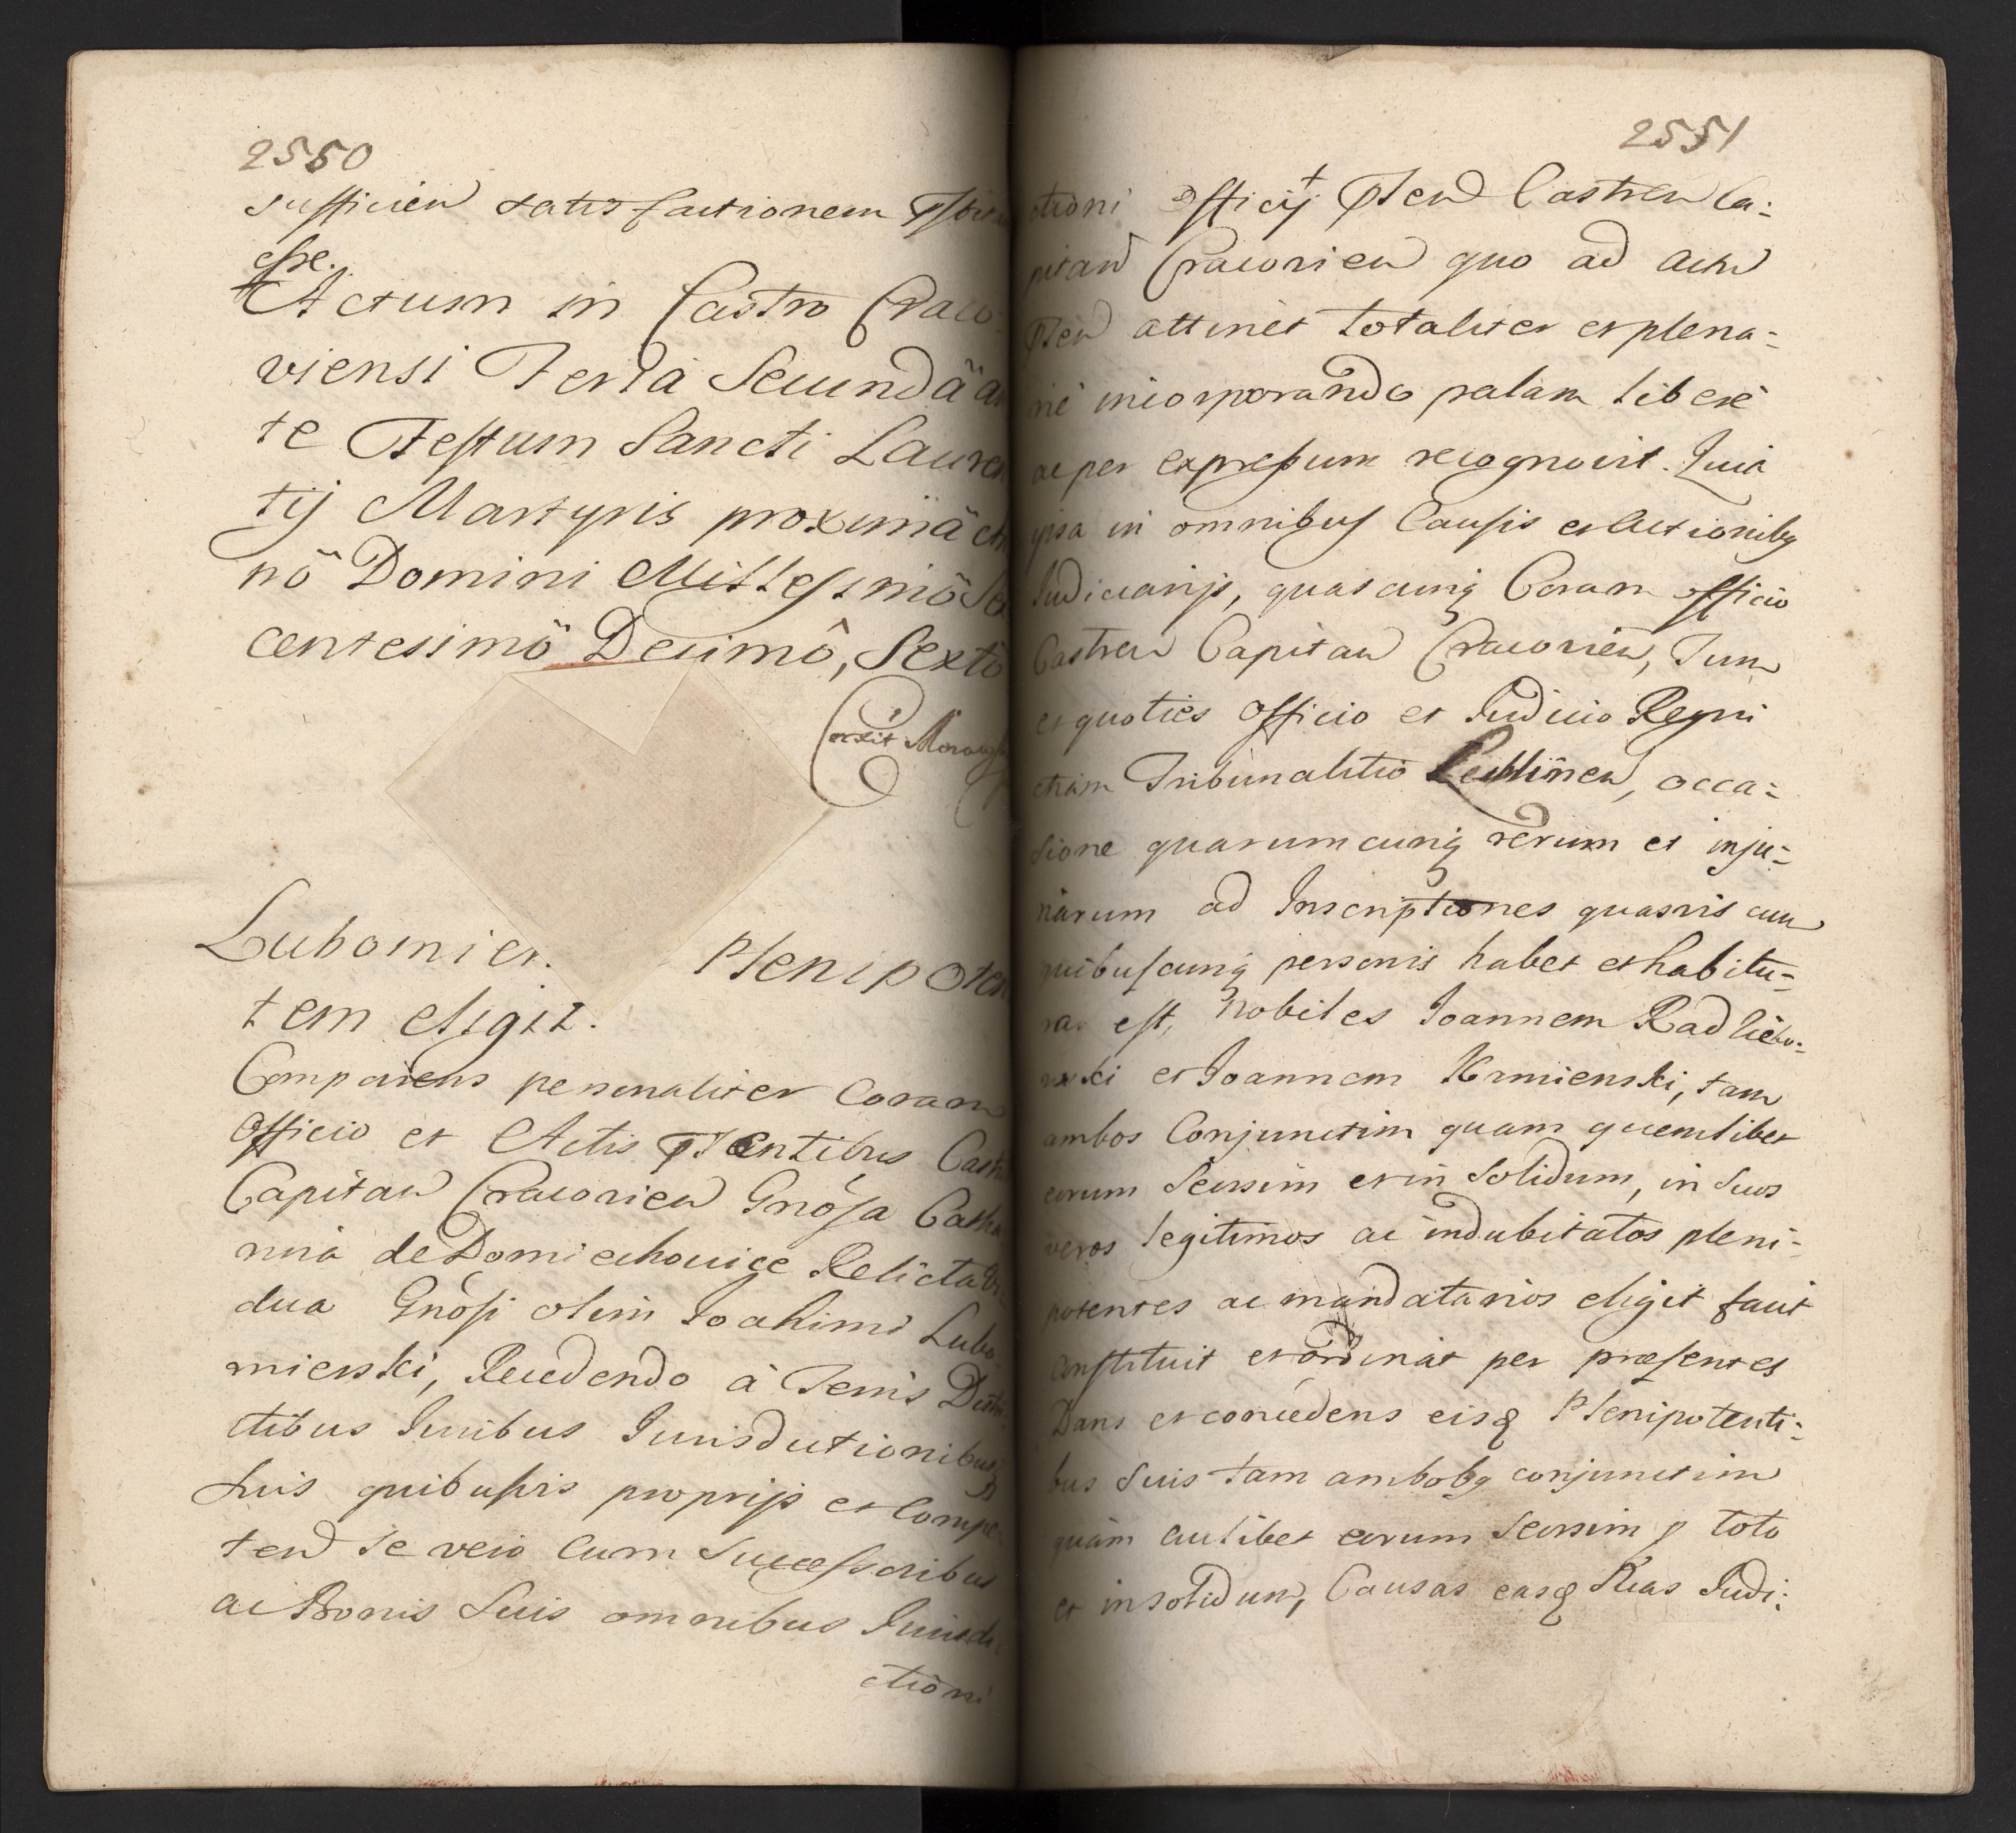 2550
sufficien satisfactionem
esse.
Actum in Castro Craco
viensi Feria Secundâ an
te Festum Sancti Lauren
tij Martyris proximâ An
nô Domini Millesimô Sex
centesimô Decimô, Sextô
Lubomier. Plenipoten
tem eligit.
Comparens personaliter Coram
Officio et Actis Pṡentibus Castr
Capitan Cracovien Gnosa Catha
rina de Domiechowice Relicta Vi
dua Gnosi olim Joahimi Lubo
mierski, Recedendo à Terris Distri
ctibus Juribus Jurisdictionibusq
Suis quibusvis proprijs et Compe
ten se vero cum Successoribus
ac Bonis Suis omnibus Jurisdi
ctioni
2551
ctioni Officij Pṡen Castren Ca:
pitan Cracovien quo ad actu
Pṡen attinet totaliter et plena:
rie incorporando palam liberè
ac per expressum recognovit. Quia
ipsa in omnibus Causis et Actionibq
Judiciarijs, quascunq Coram officio
Castren Capitan Cracovien, Tum
et quoties Officio et Judicio Regni
etiam Tribunalitio Lublinen, occa:
sione quarumcunq rerum et inju:
riarum ad Inscriptiones quasvis cum
quibuscunq personis habet et habitu:
ra est, Nobiles Joannem Radlicko:
wski et Joannem Krmienski, tam
ambos Conjunctim quam quemlibet
eorum Seorsim et in Solidum, in Suos
veros legitimos ac indubitatos pleni:
potentes ac mandatarios eligit facit
constituit et ordinat per præsentes
Dans et concedens eisq Plenipotenti:
bus Suis tam ambobq conjunctim
quàm cuilibet eorum Seorsim p toto
et in solidum, Causas easq Suas Judi: